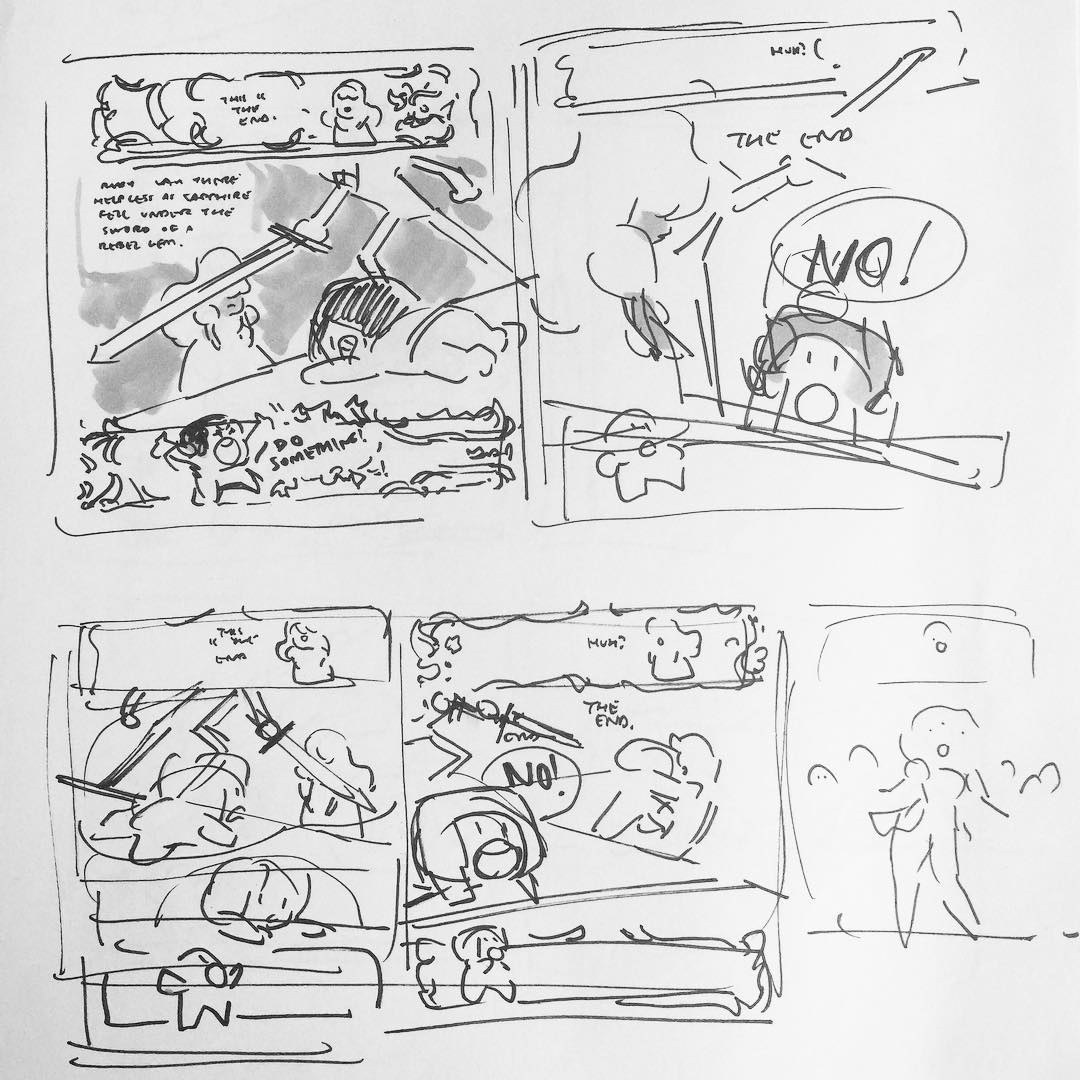 THIS IS
THE
END.
RUBY WAS THERE
HELPLESS AS SAPPHIRE
FELL UNDER THE
SWORD OF A
REBEL GEM.
DO
SOMETHING!
HUH?
THE END
NO!
THIS
IS THE
END
HUH?
THE
END.
END
NO!